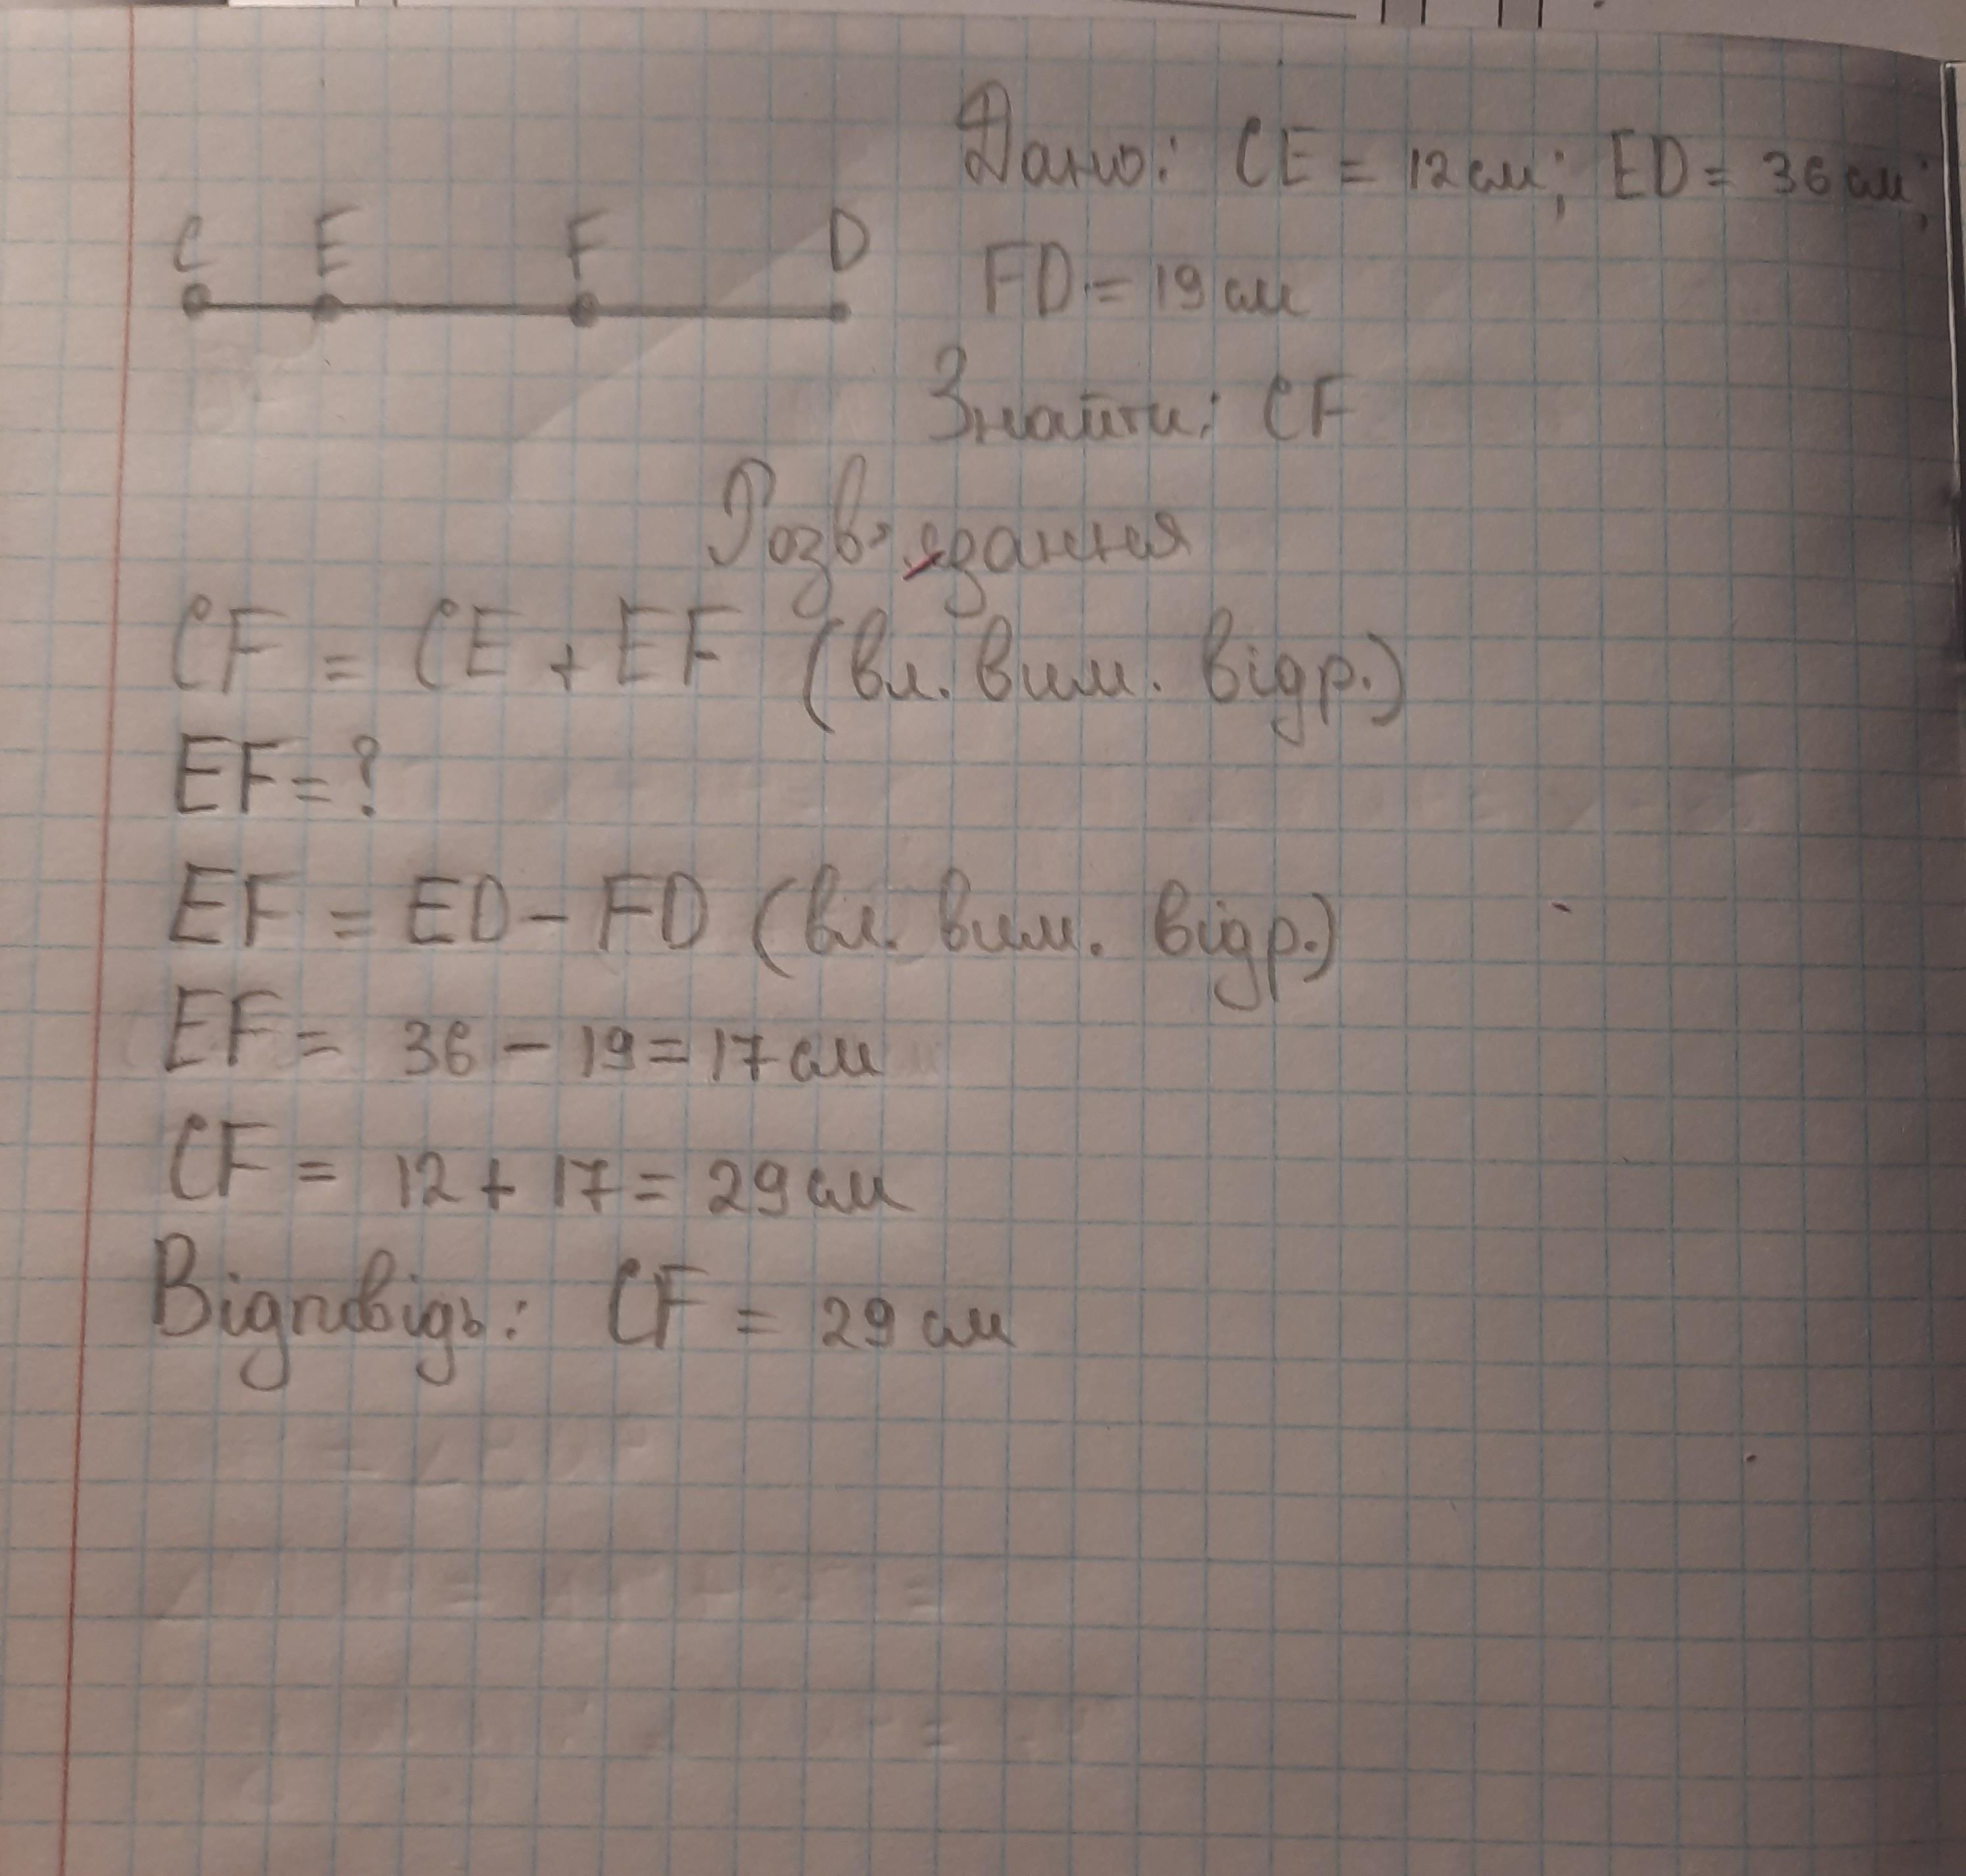 Дано: CE = 12 см; ED = 36 см;
C E F D
FD = 19 см
Знайти: CF
Розв'язання
CF = CE + EF (вл. вим. відр.)
EF = ?
EF = ED - FD (вл. вим. відр.)
EF = 36 - 19 = 17 см
CF = 12 + 17 = 29 см
Відповідь: CF = 29 см